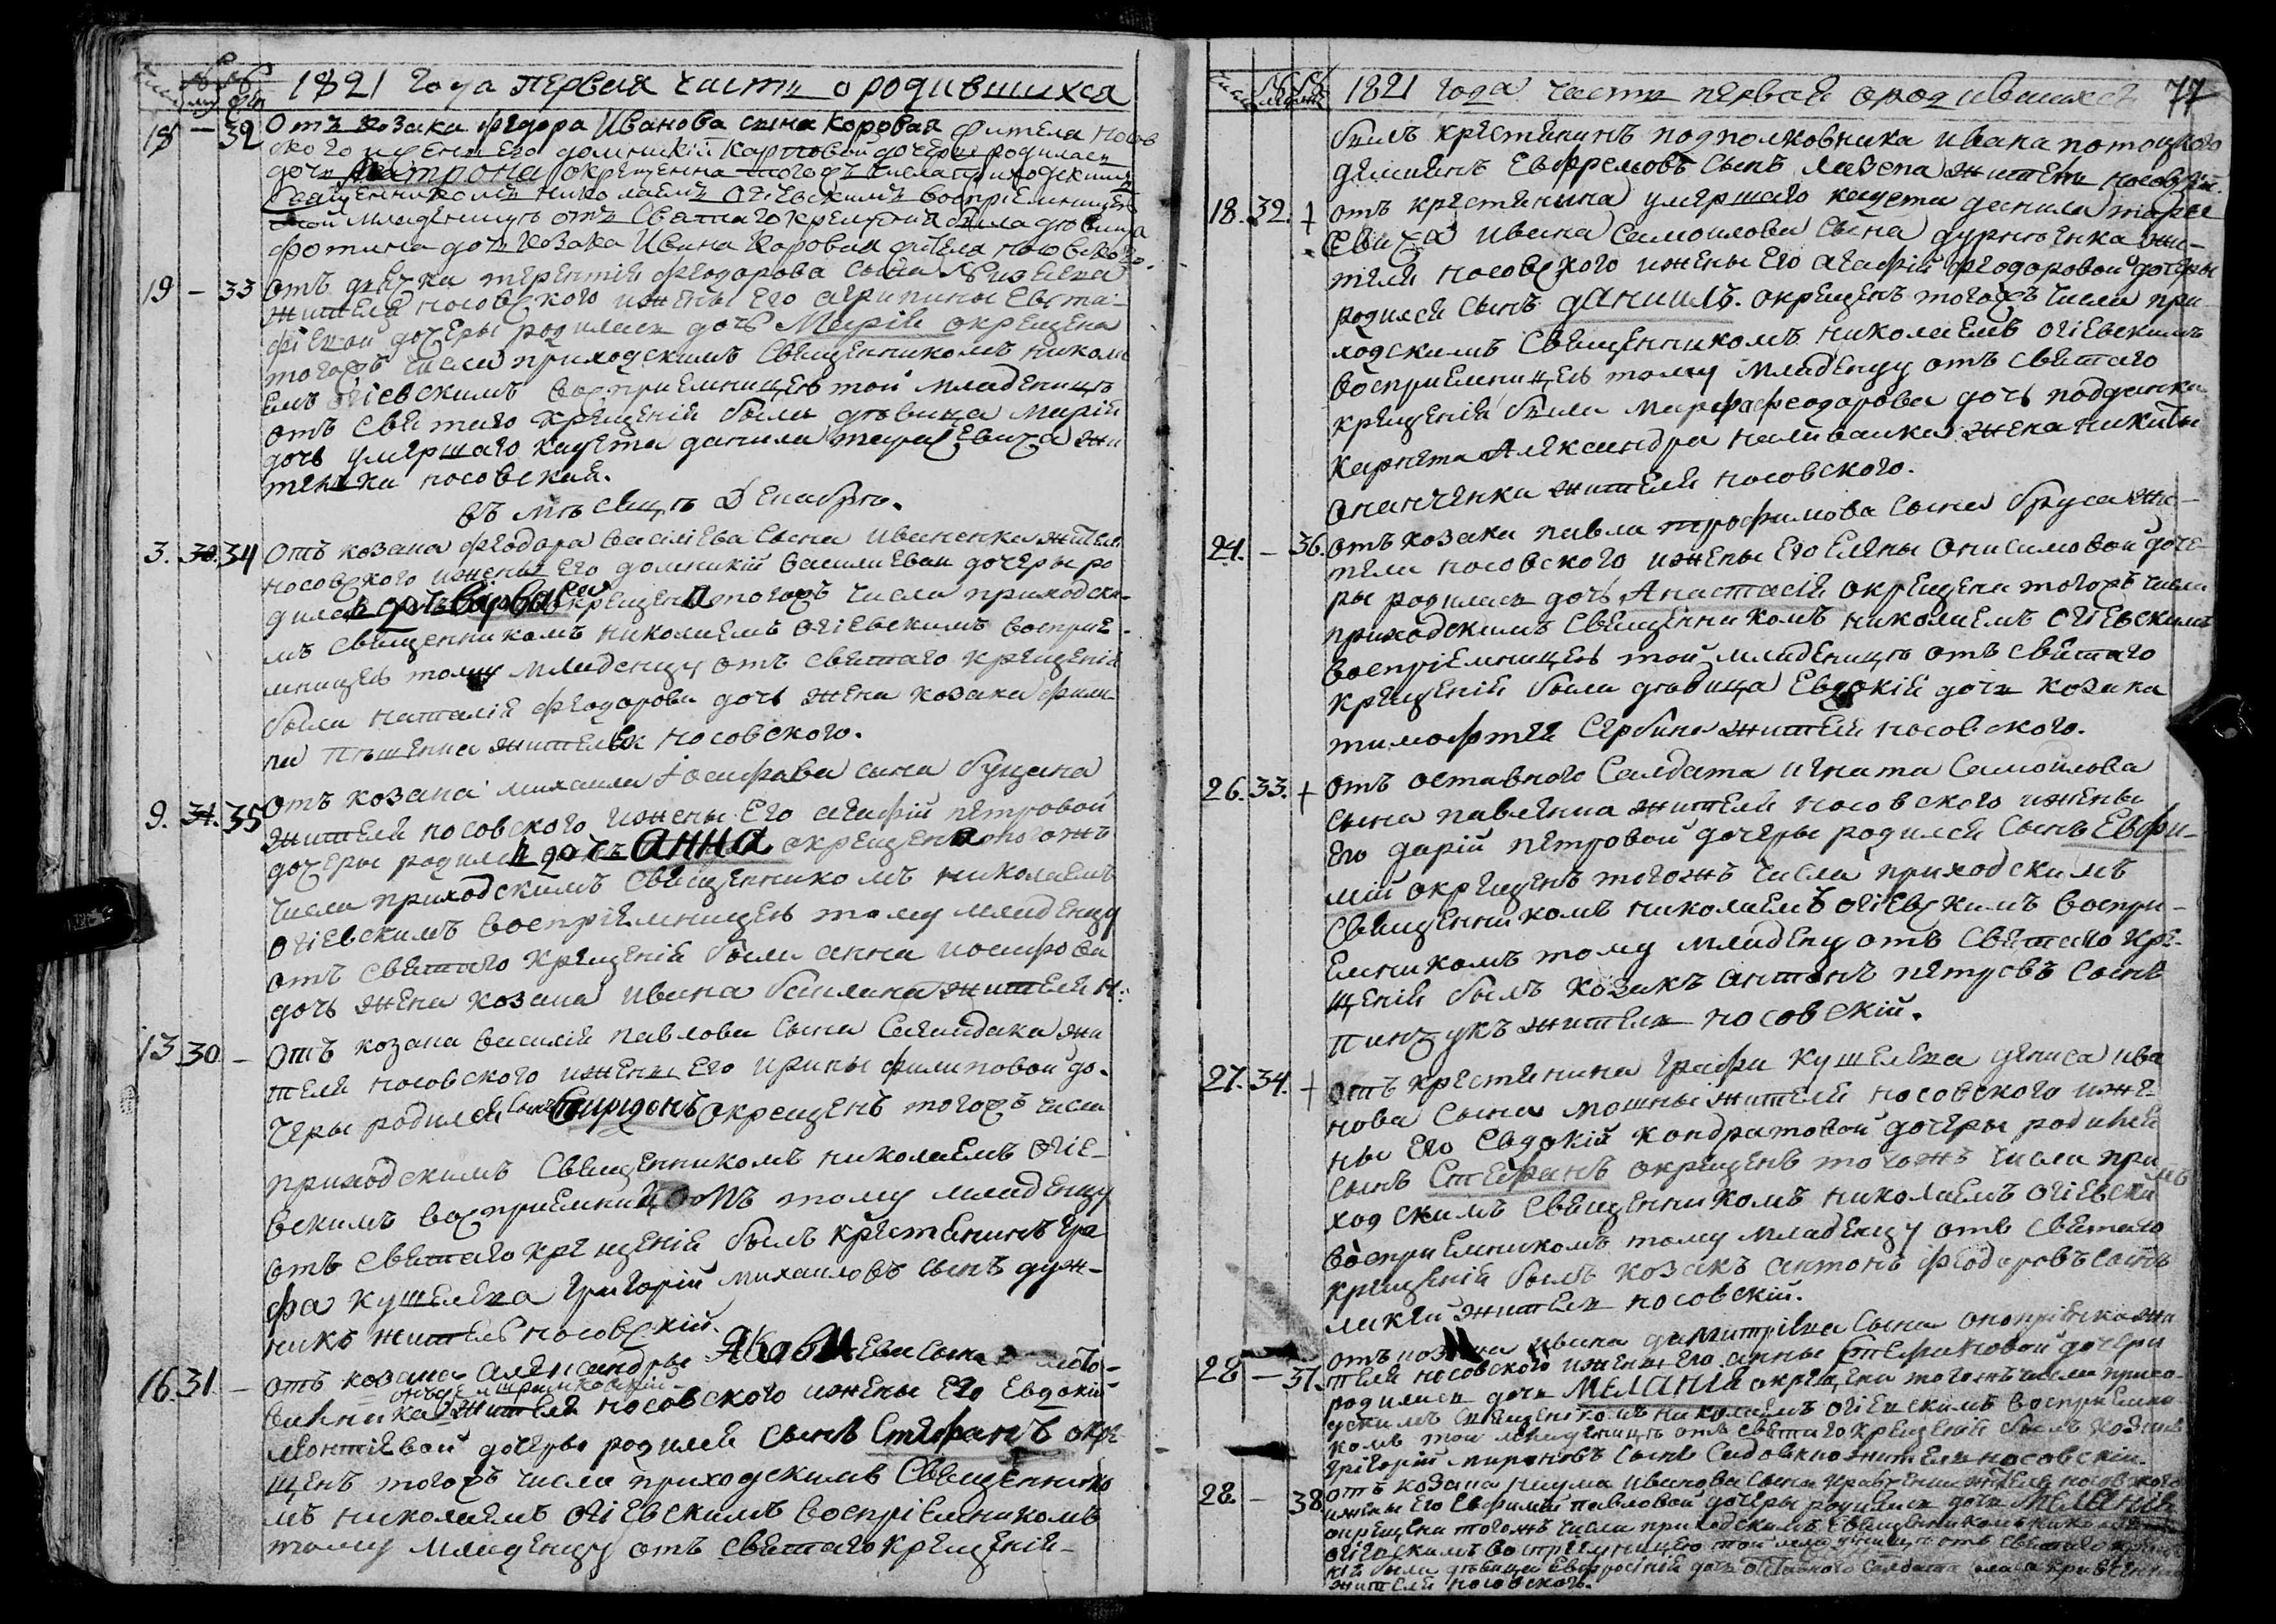 1821 года первая часть о родившихся
18 – 32 Отъ козака Федора Иванова сына Коровая жителя носов
ского и жены его домникіи Карповой дочеры родилась
дочь Матрона окрещенна тогожъ числа приходскимъ
Священникомъ Николаемъ Огіевскимъ воспріемницею
той младеницѣ отъ Святаго крещенія была дѣвица
Фотина дочь козака Ивана Коровая жителя носовского.
19 – 33 отъ терентія феодорова сына
жителя носовского и жены его агрипины Евста-
фіевой дочеры родилась дочь Марія окрещена
тогожъ числа приходскимъ Священникомъ Никола
емъ огіевскимъ воспріемницею той младеницѣ
отъ Святаго крещенія была дѣвица Марія
дочь умершаго кадета данила тарасевича жи
телька носовская.
въ мѣсяцѣ Декабрѣ.
3. 30. 34 Отъ козака феодора василіева сына иваненка жителя
носовского и жены его домникіи василиевой дочеры ро
дилась дочь варвара окрещена тогожъ числа приходски-
мъ священникомъ николаемъ огіевскимъ воспріе-
мницею тому младенцу отъ святаго крещенія
была наталія феодорова дочь жена козака фили-
па жителя носовского.
9. 31. 35 Отъ козака михаила Іосифова сына буцана
жителя носовского и жены его агафіи петровой
дочеры родилась дочь анна окрещена тогожъ
числа приходскимъ священникомъ николаемъ
огіевскимъ воспріемницею тому младенцу
отъ святаго крещенія была анна иосифова
дочь жена козака ивана жителя н:
13 30 – Отъ козака василія павлова сына Сагайдака жи
теля носовского и жены его ирины филиповой до-
черы родился сынъ Спиридонъ окрещенъ тогожъ числа
приходскимъ священникомъ николаемъ огіе-
вскимъ воспріемникомъ тому младенцу
отъ святаго крещенія былъ крестянинъ гра
фа кушелева григорій михаиловъ сынъ дуж-
никъ житель носовскій.
16. 31. – отъ козака александра сына
жителя носовского и жены его Евдокіи
леонтіевой дочеры родился сынъ Стефанъ окре
щенъ тогожъ числа приходскимъ священнико
мъ николаемъ огіевскимъ воспріемникомъ
тому младенцу отъ святаго крещенія
1821 года часть первая о родившихся 77
былъ крестянинъ подполковника ивана потоцкого
демиянъ Евфремовъ сынъ лазепа житель носовскій.
18. 32. + отъ крестянина умершаго кадета данила тара
севича ивана Самоилова сына дурнѣенка жи-
теля носовского и жены его агафіи феодоровой дочеры
родился сынъ даниилъ. окрещенъ тогожъ числа при
ходскимъ священникомъ николаемъ огіевскимъ
воспріемницею тому младенцу отъ святаго
крещенія была марфа феодорова дочь
карнета Александра наливайка жена никиты
онанченка жителя носовского.
24. – 36. отъ козака павла трофимова сына бруса жи-
теля носовского и жены его елены онисимовой доче-
ры родилась дочь Анастасія окрещена тогожъ числа
приходскимъ священникомъ николаемъ огіевскимъ
воспріемницею той младеницѣ отъ святаго
крещенія была дѣвица Евдокія дочь козака
тимофтея Сербина жителя носовского.
26. 33. + отъ отставного салдата игната Самойлова
сына павленка жителя носовского и жены
его дарій петровой дочеры родился сынъ Евфи-
мій окрещенъ тогожъ числа приходскимъ
священникомъ николаемъ огіевскимъ воспри-
емникомъ тому младенцу отъ святаго кре-
щенія былъ козакъ антонъ петровъ сынъ
пинчукъ житель носовскій.
27. 34. + отъ крестянина графа кушелева дениса ива
нова сына мошны жителя носовского и же-
ны его Евдокіи кондратовой дочеры родился
сынъ Стефанъ окрещенъ тогожъ числа при
ходскимъ священникомъ николаемъ огіевскимъ
воспріемникомъ тому младенцу отъ святаго
крещенія былъ козакъ антонъ феодоровъ сынъ
житель носовскій.
28 – 37. отъ козака ивана димитріева сына оноприенка жи
теля носовского и жены его анны стефановой дочери
родилась дочь Меланія окрещена тогожъ числа прихо-
дскимъ священикомъ николаемъ огіевскимъ воспріемни
комъ той младеницѣ отъ святаго крещенія былъ козакъ
григорій мироновъ сынъ житель носовскій.
28. – 38. отъ козака наума иванова сына жителя носовского
и жены его Евфиміи павловой дочеры родилась дочь Меланія
окрещена тогожъ числа приходскимъ священникомъ николаемъ
огіевскимъ воспріемницею той младеницѣ отъ святаго креще
нія была дѣвица Евфросинія дочь отставного салдата
жителя носовского.